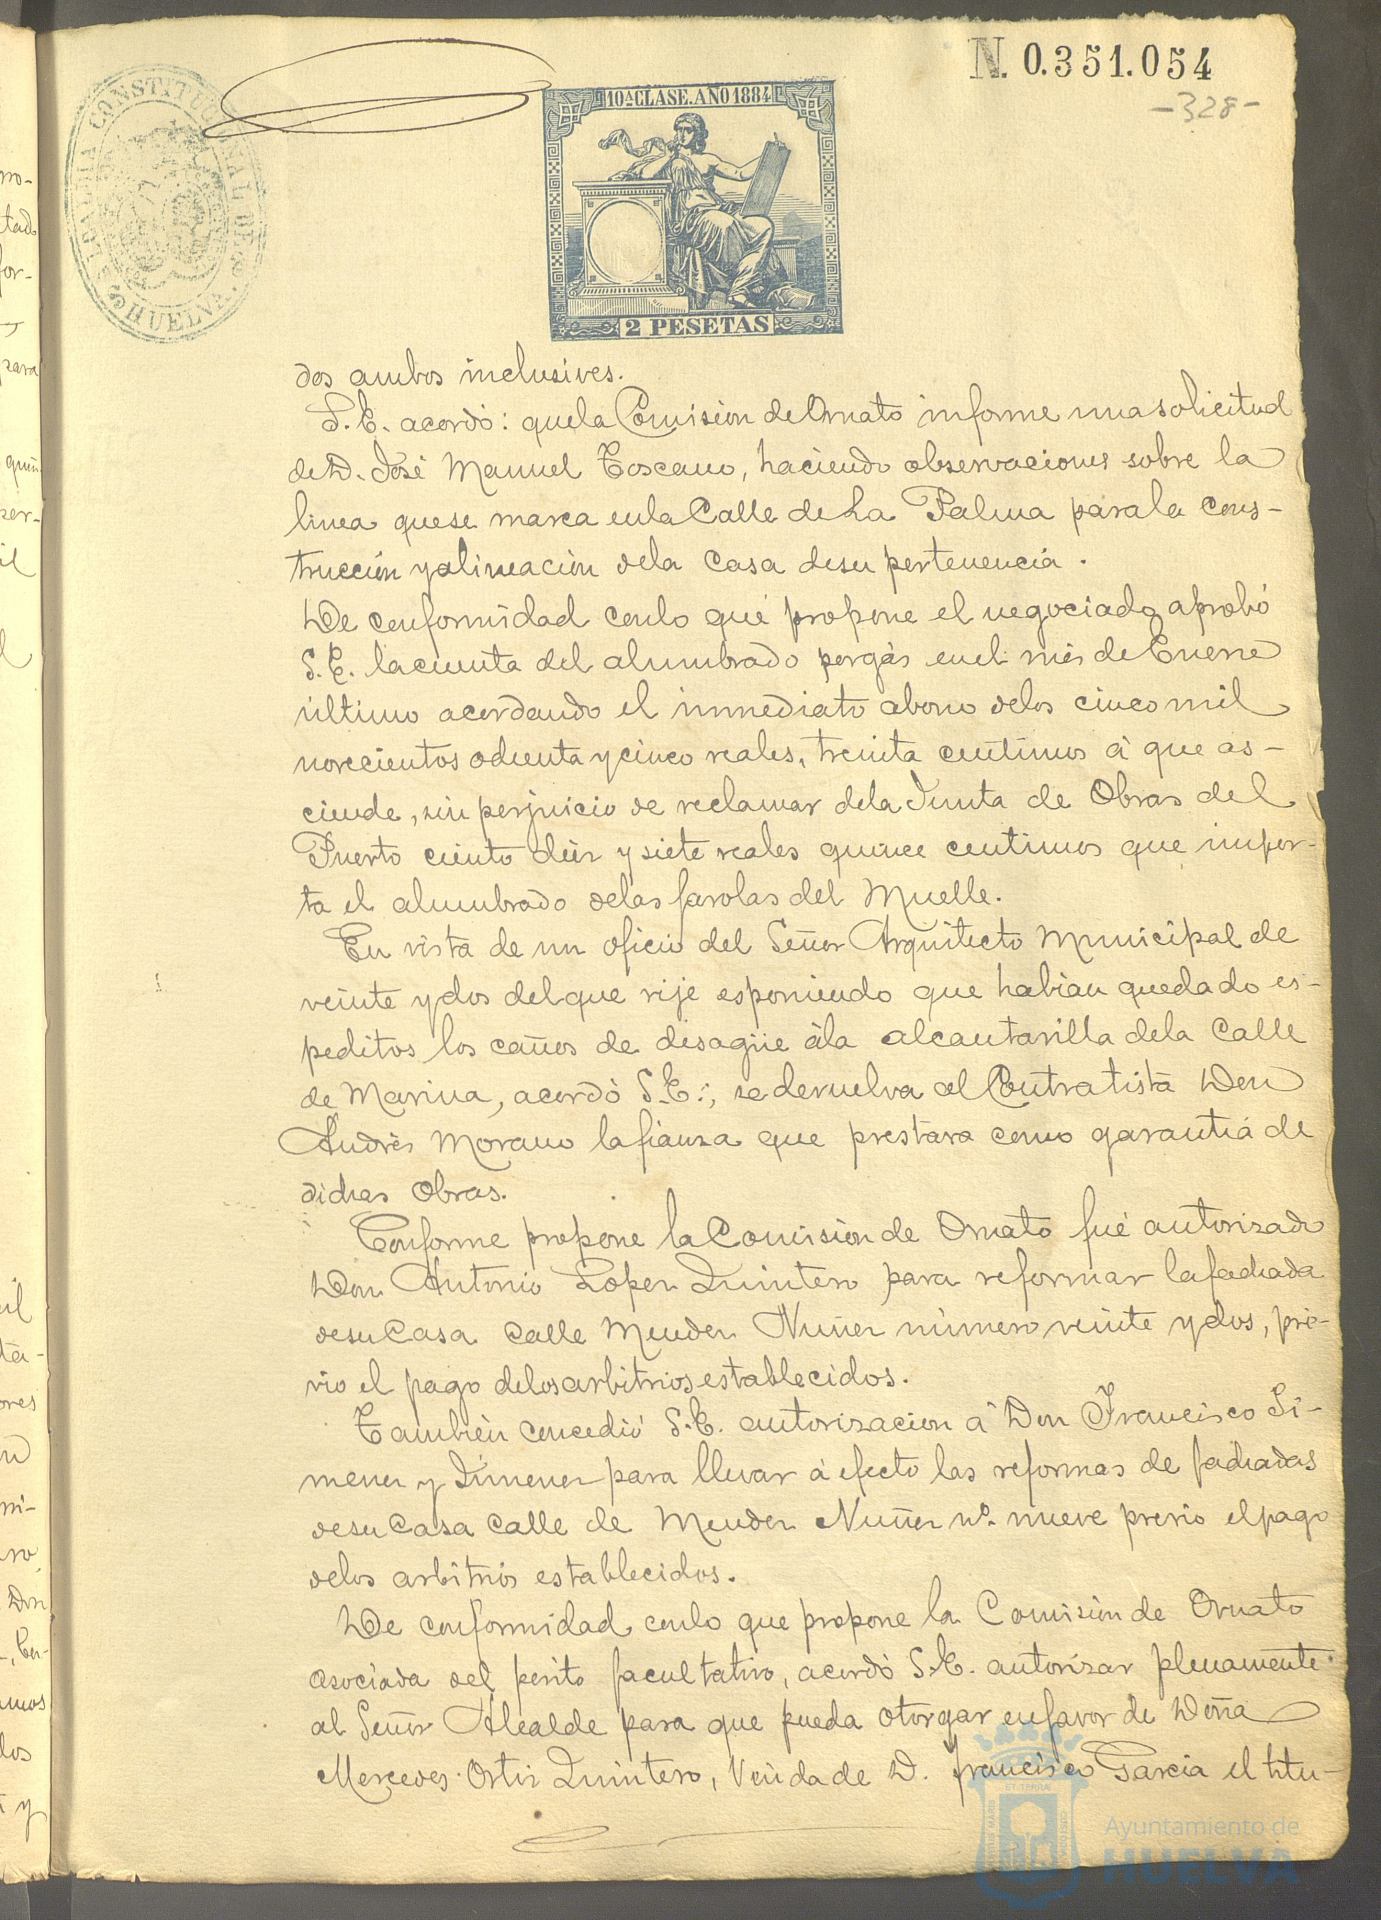 N. 0.351.054
-328-
ALCALDIA CONSTITUCIONAL DE HUELVA
10ª CLASE. AÑO 1884
2 PESETAS
dos ambos inclusives.
S.E. acordó: que la Comisión de Ornato informe una solicitud
de D. José Manuel Toscano, haciendo observaciones sobre la
linea que se marca en la Calle de La Palma para la cons-
trucción y alineación de la casa de su pertenencia.
De conformidad con lo que propone el negociado aprobó
S.E. la cuenta del alumbrado por gás en el mes de Enero
último acordando el inmediato abono de los cinco mil
novecientos ochenta y cinco reales, treinta centimos á que as-
ciende, sin perjuicio de reclamar de la Junta de Obras del
Puerto ciento diez y siete reales quince centimos que impor-
ta el alumbrado de las farolas del Muelle.
En vista de un oficio del Señor Arquitecto Municipal de
veinte y dos del que rije esponiendo que habian quedado es-
peditos los caños de desagüe á la alcantarilla de la Calle
de Marina, acordó S.E.; se devuelva al Contratista Don
Andrés Morano la fianza que prestara como garantiá de
dichas Obras.
Conforme propone la Comisión de Ornato fué autorizado
Don Antonio Lopez Quintero para reformar la fachada
de su Casa Calle Mendez Nuñez número veinte y dos, pré-
vio el pago de los arbitrios establecidos.
También concedió S.E. autorizacion á Don Francisco Ji-
menez y Jimenez para llevar á efecto las reformas de fachadas
de su Casa Calle de Mendez Nuñez nº. nueve previo el pago
de los arbitrios establecidos.
De conformidad con lo que propone la Comisión de Ornato
asociada del perito facultativo, acordó S.E. autorizar plenamente
al Señor Alcalde para que pueda otorgar en favor de Doña
Mercedes Ortiz Quintero, Viuda de D. Francisco Garcia el títu-
Ayuntamiento de
HUELVA